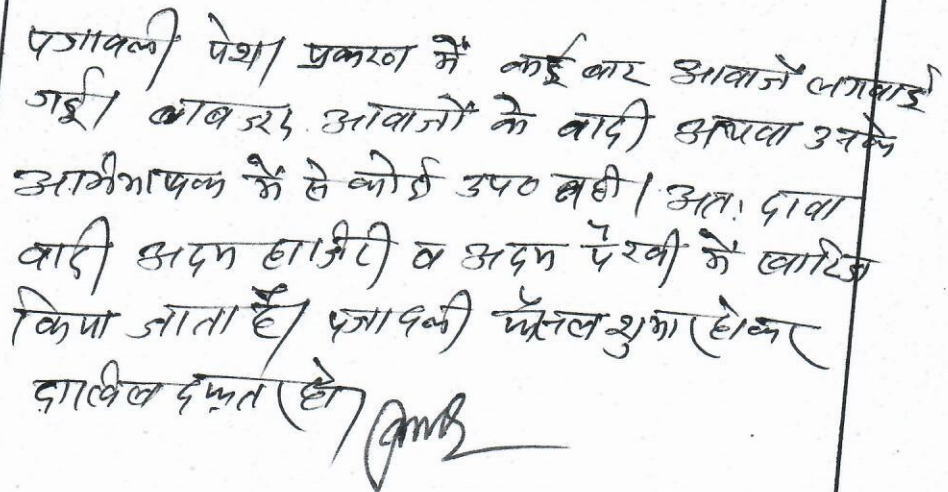 पत्रावली पेश। प्रकरण में कई बार आवाजें लगवाई
गई। बावजूद आवाजों के वादी अथवा उनके
अभिभाषक में से कोई उप० नही। अतः दावा
वादी अदम हाजिरी व अदम पैरवी में खारिज
किया जाता है। पत्रावली फैसल शुमार होकर
दाखिल दफ्तर हो।